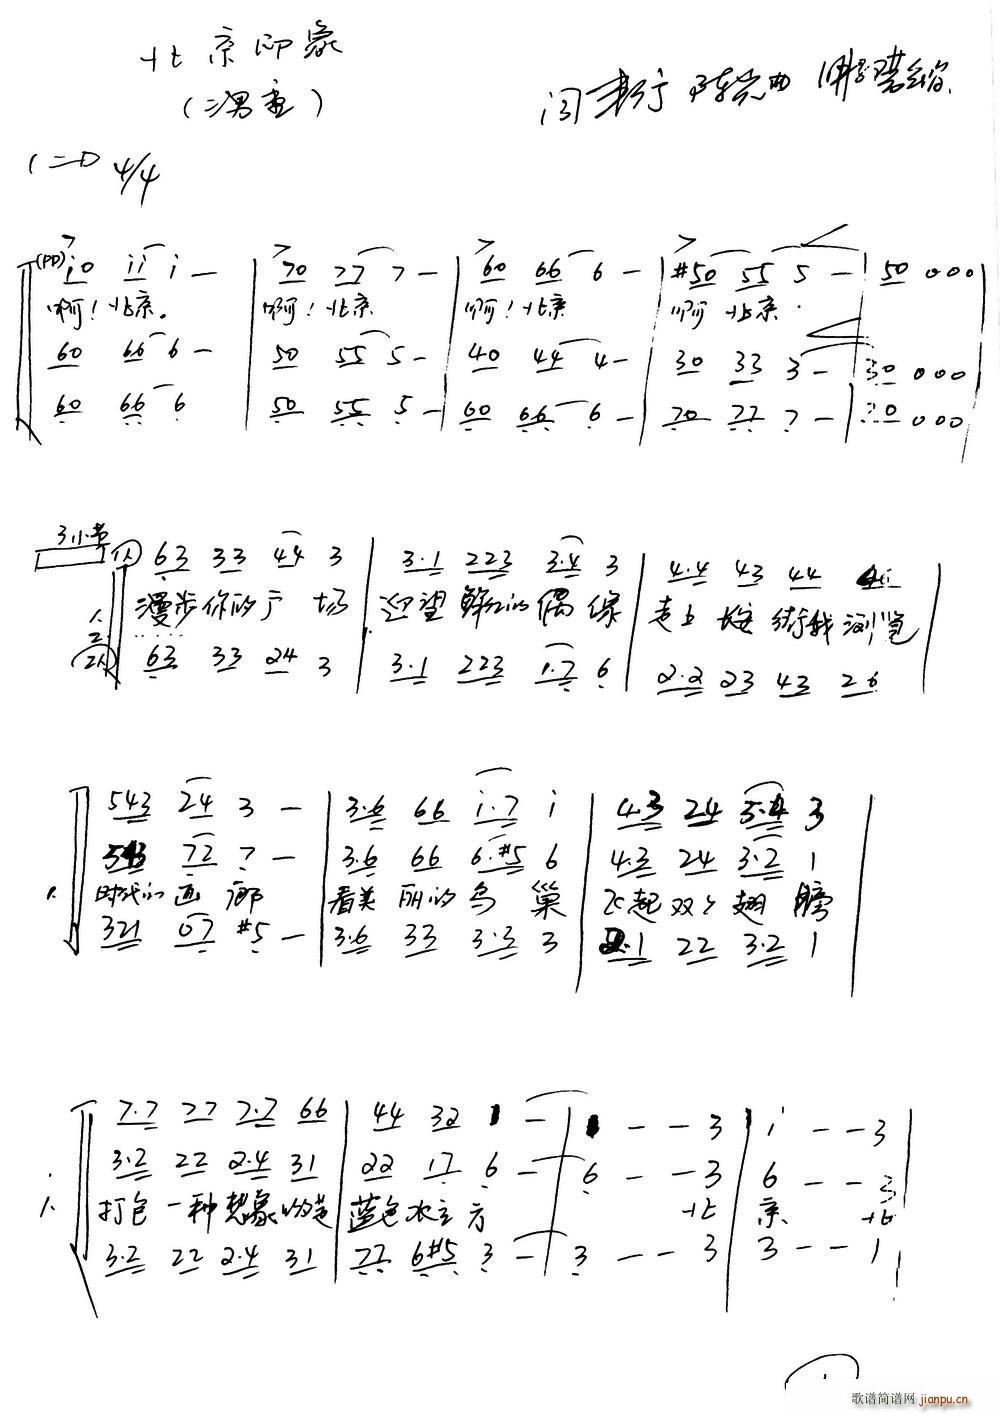 北京印象
(二男童)
1=D 4/4
(PD) i0 ii i - | 70 77 7 - | 60 66 6 - | #50 55 5 - | 50 000
啊!北京. 啊!北京 啊!北京 啊 北京
60 66 6 - | 50 55 5 - | 40 44 4 - | 30 33 3 - | 30 000
60 66 6 | 50 55 5 - | 60 66 6 - | 70 77 7 - | 70 000
3小节
63 33 44 3 | 3·1 223 3·4 3 | 4·4 43 44
漫步你的广场 迎望鲜红的偶像 走上长安街我浏览
63 33 24 3 | 3·1 223 1·7 6 | 2·2 23 43 26
543 24 3 - | 3·6 66 i·7 i | 4·3 24 3·4 3
543 72 7 - | 3·6 66 6·#5 6 | 4·3 24 3·2 1
1. 时代的画廊 看美丽的鸟巢 飞起双双翅膀
321 07 #5 - | 3·6 33 3·3 3 | 2·1 22 3·2 1
7·7 77 7·7 66 | 44 32 1 - | 1 - - 3 | i - - 3
3·2 22 2·4 31 | 22 17 6 - | 6 - - 3 | 6 - - 3
1. 打包一种想象的 蓝色水立方 北京 北
3·2 22 2·4 31 | 77 6#5 3 - | 3 - - 3 | 3 - - 1
1
歌谱简谱网 jianpu.cn